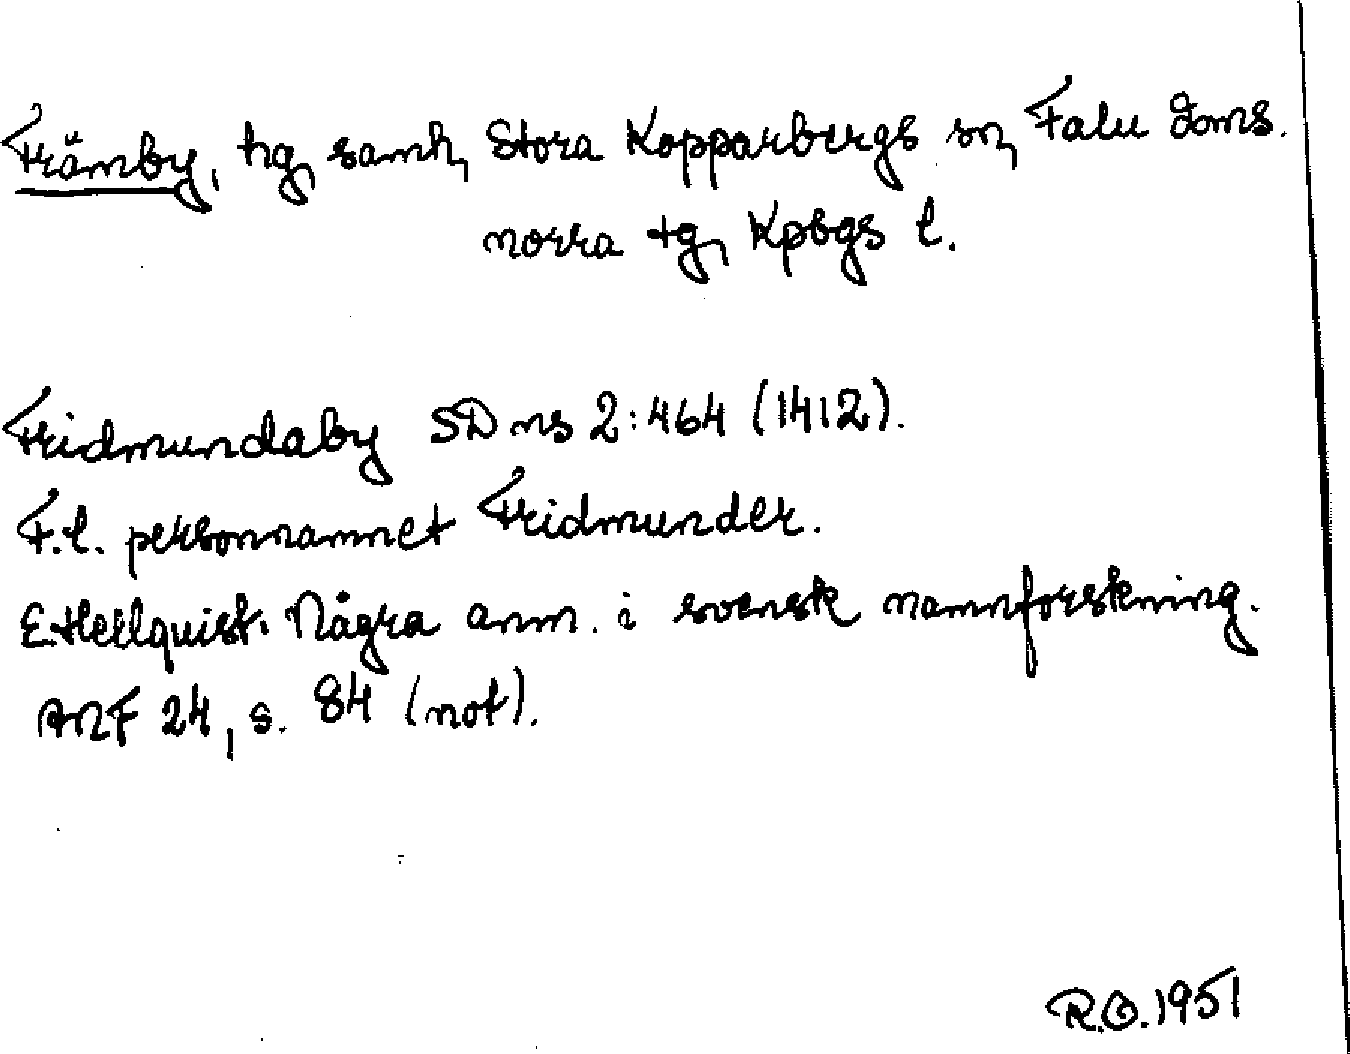 Främby, hg, samh, Stora Kopparbergs sn, Falu doms.
norra tg, Kpbgs l.
Fridmundaby SD ns 2:464 (1412).
F.l. personnamnet Fridmunder.
E. Hellquist. Några anm. i svensk namnforskning.
ANF 24, s. 84 (not).
R.O. 1951